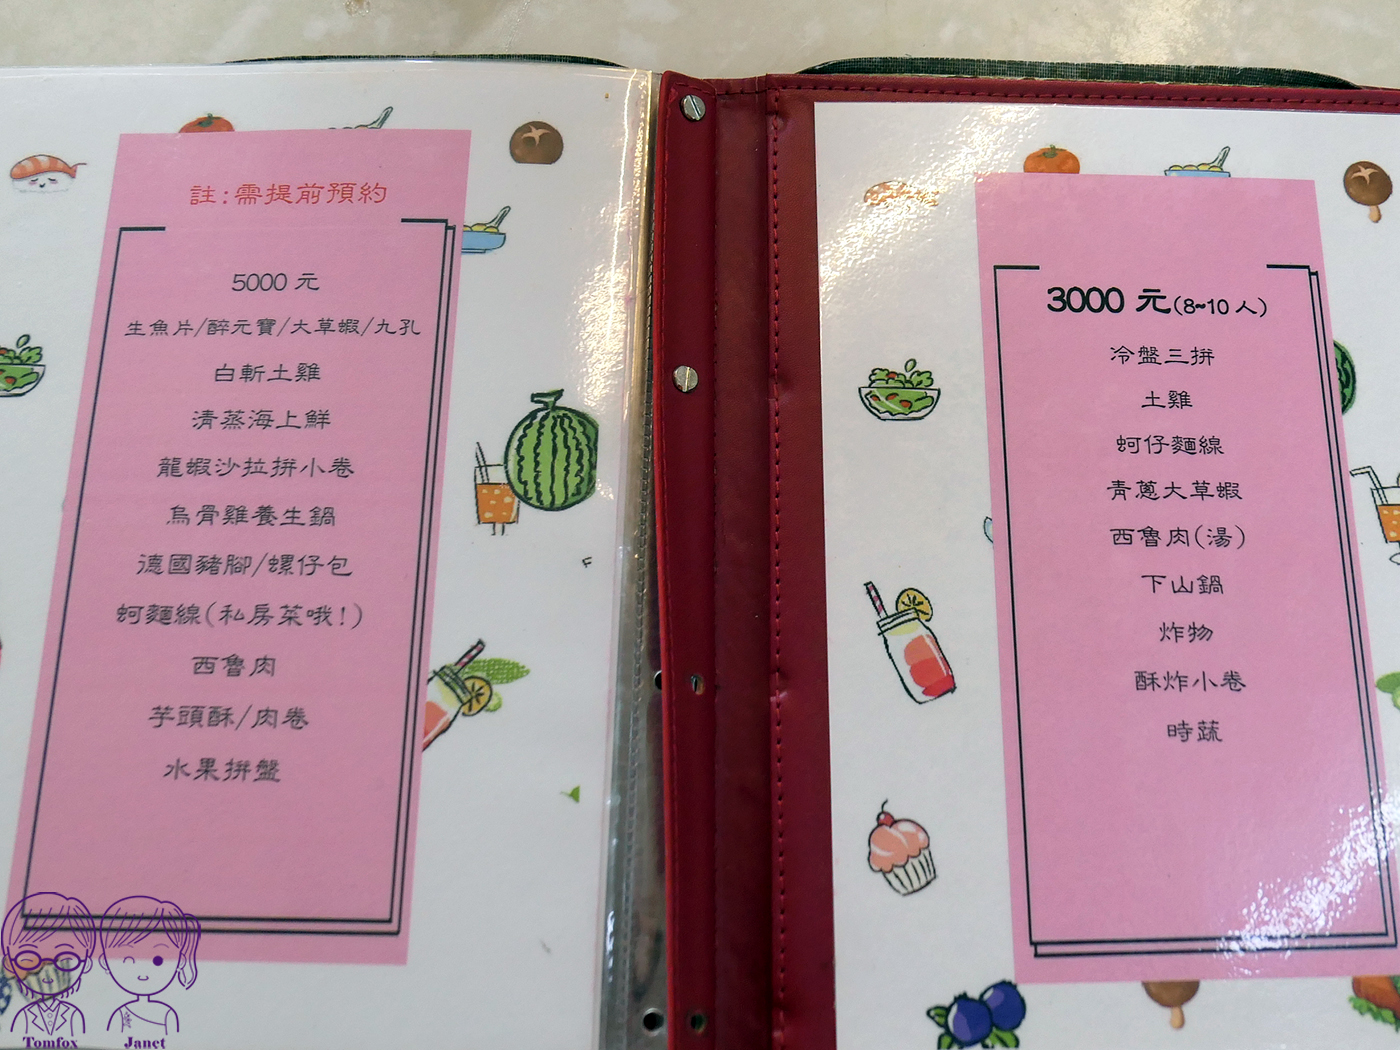 註:需提前預約
5000 元
生魚片/醉元寶/大草蝦/九孔
白斬土雞
清蒸海上鮮
龍蝦沙拉拼小卷
烏骨雞養生鍋
德國豬腳/螺仔包
蚵麵線(私房菜哦!)
西魯肉
芋頭酥/肉卷
水果拼盤
3000 元(8~10 人)
冷盤三拼
土雞
蚵仔麵線
青蔥大草蝦
西魯肉(湯)
下山鍋
炸物
酥炸小卷
時蔬
Tomfox Janet